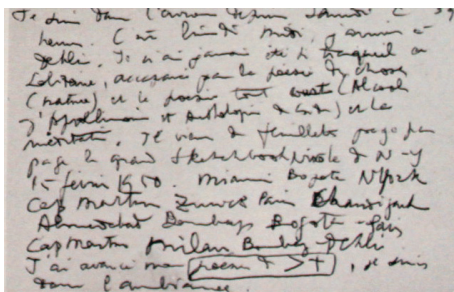 Je suis dans l'avion depuis samedi 2
heures. C'est lundi midi, j'arrive à
Dehli. Je n'ai jamais été si tranquil et
solitaire, accaparé par la poésie des choses
(nature) et la poésie tout court (Alcool
d'Appollinaire et Anthologie de Gide) et la
méditation. Je viens de feuilleter page par
page le grand Sketchbook Nivola de N-Y
15 février 1950. Miami Bogota N York
Cap Martin Zurich Paris Chandigarh
Ahmedabad Bombay Bogota - Paris
Cap Martin Milan Bombay - Dehli
J'ai avancé mon poème de > +, je suis
dans l'ambiance